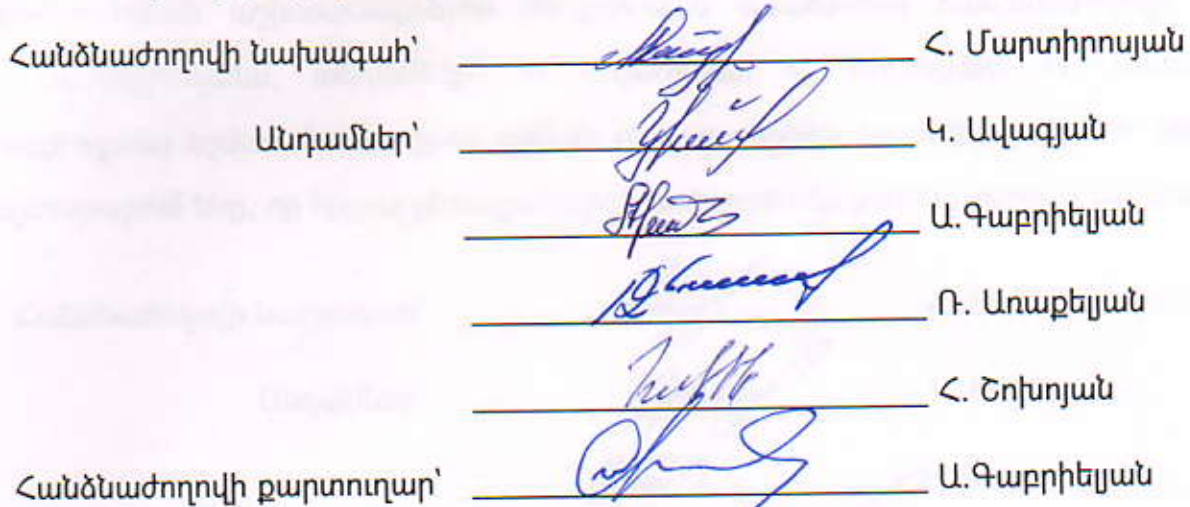 Հանձնաժողովի նախագահ՝ Հ. Մարտիրոսյան
Անդամներ՝ Կ. Ավագյան
Ա.Գաբրիելյան
Ռ. Առաքելյան
Հ. Շոխոյան
Հանձնաժողովի քարտուղար՝ Ա.Գաբրիելյան